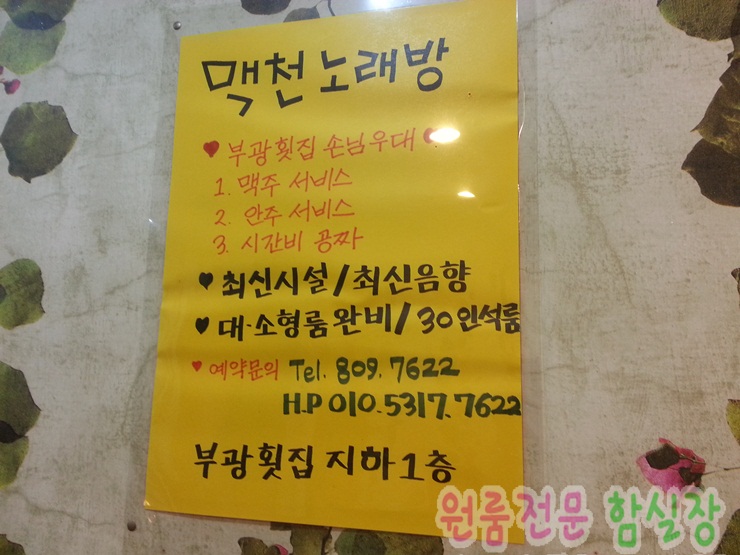 맥천노래방
♥ 부광횟집 손님우대 ♥
1. 맥주 서비스
2. 안주 서비스
3. 시간비 공짜
♥ 최신시설/최신음향
♥ 대·소형룸완비/30인석룸
♥ 예약문의 Tel. 809.7622
H.P 010.5317.7622
부광횟집 지하1층
원룸전문 함실장